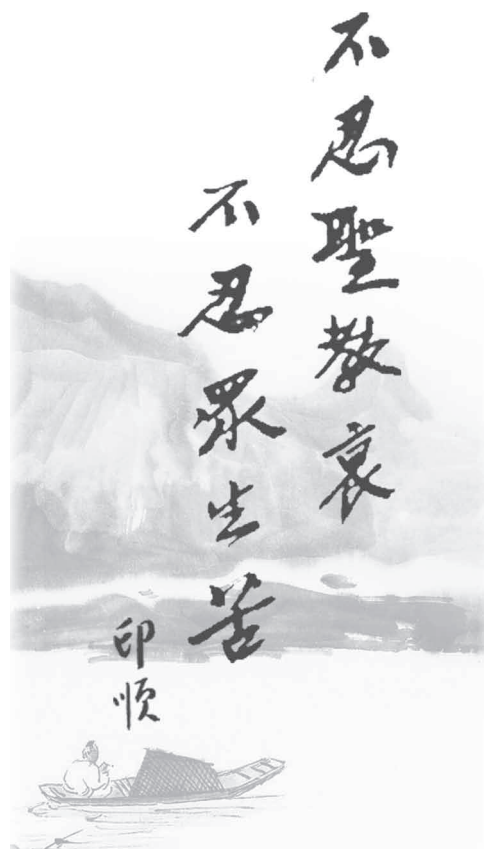 不忍聖教衰
不忍眾生苦
印順